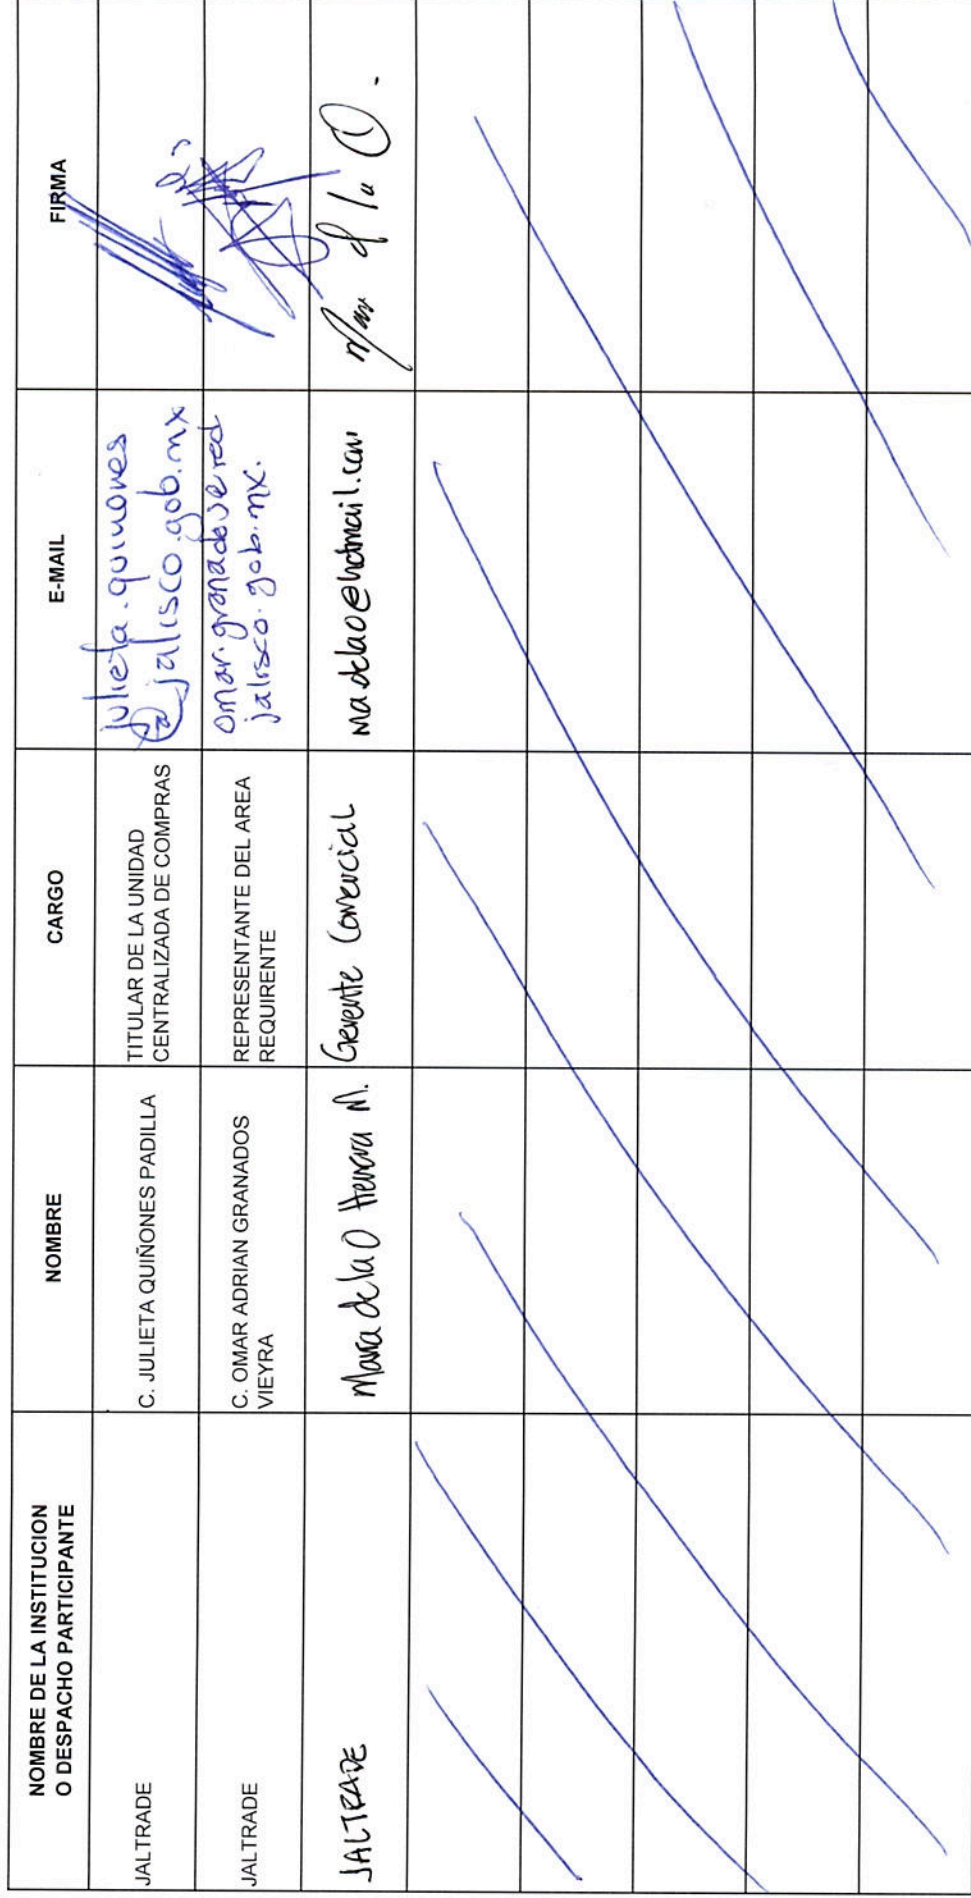 NOMBRE DE LA INSTITUCION
O DESPACHO PARTICIPANTE
NOMBRE
CARGO
E-MAIL
FIRMA
JALTRADE
C. JULIETA QUIÑONES PADILLA
TITULAR DE LA UNIDAD
CENTRALIZADA DE COMPRAS
julieta.quinones
@jalisco.gob.mx
JALTRADE
C. OMAR ADRIAN GRANADOS
VIEYRA
REPRESENTANTE DEL AREA
REQUIRENTE
jalisco.gob.mx.
JALTRADE
de la O Herrera M.
Gerente Comercial
madelao@hotmail.com